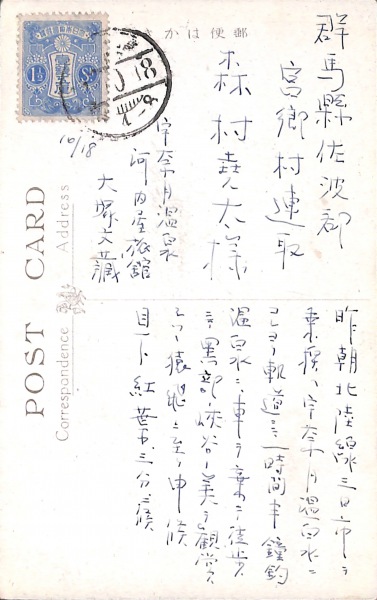 郵便はかき
1½ Sn
群馬縣佐波郡
宮郷村連取
森村堯太様
宇奈月温泉
河内屋旅館
大塚文蔵
10/18
POST CARD
Correspondence
Address
昨朝北陸線三日市ヲ
乗換ヘ宇奈月温泉ニ
軌道ニ一時間半鐘釣
温泉ニ車ヲ棄テ徒歩
ニテ黒部峡谷ノ美ヲ観賞シ
ツツ猿飛ニ至ル申候
目下紅葉三分ニ候